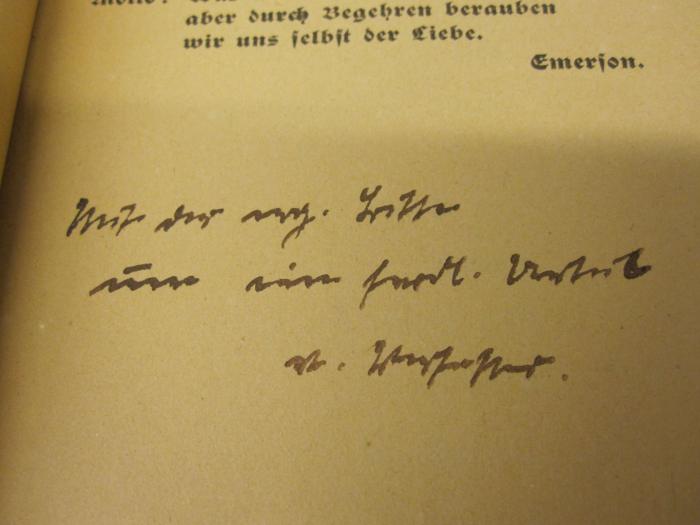 Motto: Was
aber durch Begehren berauben
wir uns selbst der Liebe.
Emerson.
Mit der erg. Bitte
um ein frdl. Urteil
v. Verfasser.